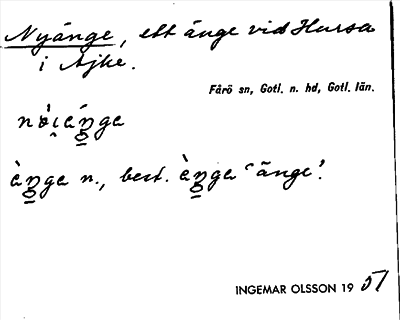 Nyänge, ett änge vid Hursa
i Ajke.
Fårö sn, Gotl. n. hd, Gotl. län.
nòi̯éŋ̲ge
èŋ̲ge n., best. èŋ̲ge 'änge'.
INGEMAR OLSSON 19 51